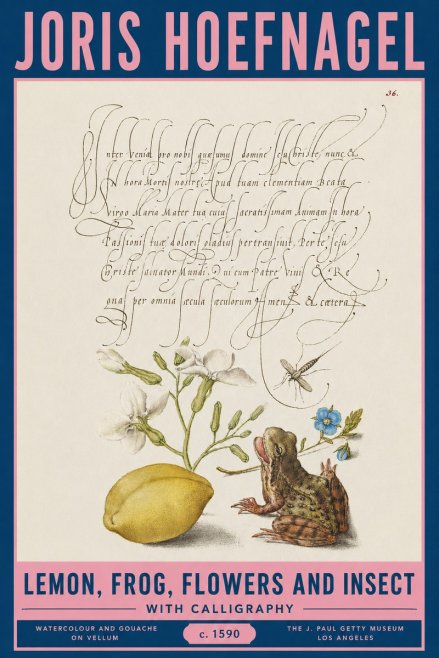 JORIS HOEFNAGEL
36.
nter veniat pro nobis quæsumus domine Jesu Christe nunc &
hora Mortis nostræ Apud tuam clementiam Beata
Virgo Maria Mater tua cuius sacratissimam Animam in hora
Passionis tuæ doloris gladius pertransiuit. Per te Jesu
Christe saluator Mundi. Qui cum Patre viuis & Re
per omnia sæcula sæculorum Amen & cætera
LEMON, FROG, FLOWERS AND INSECT
WITH CALLIGRAPHY
WATERCOLOUR AND GOUACHE
ON VELLUM
c. 1590
THE J. PAUL GETTY MUSEUM
LOS ANGELES